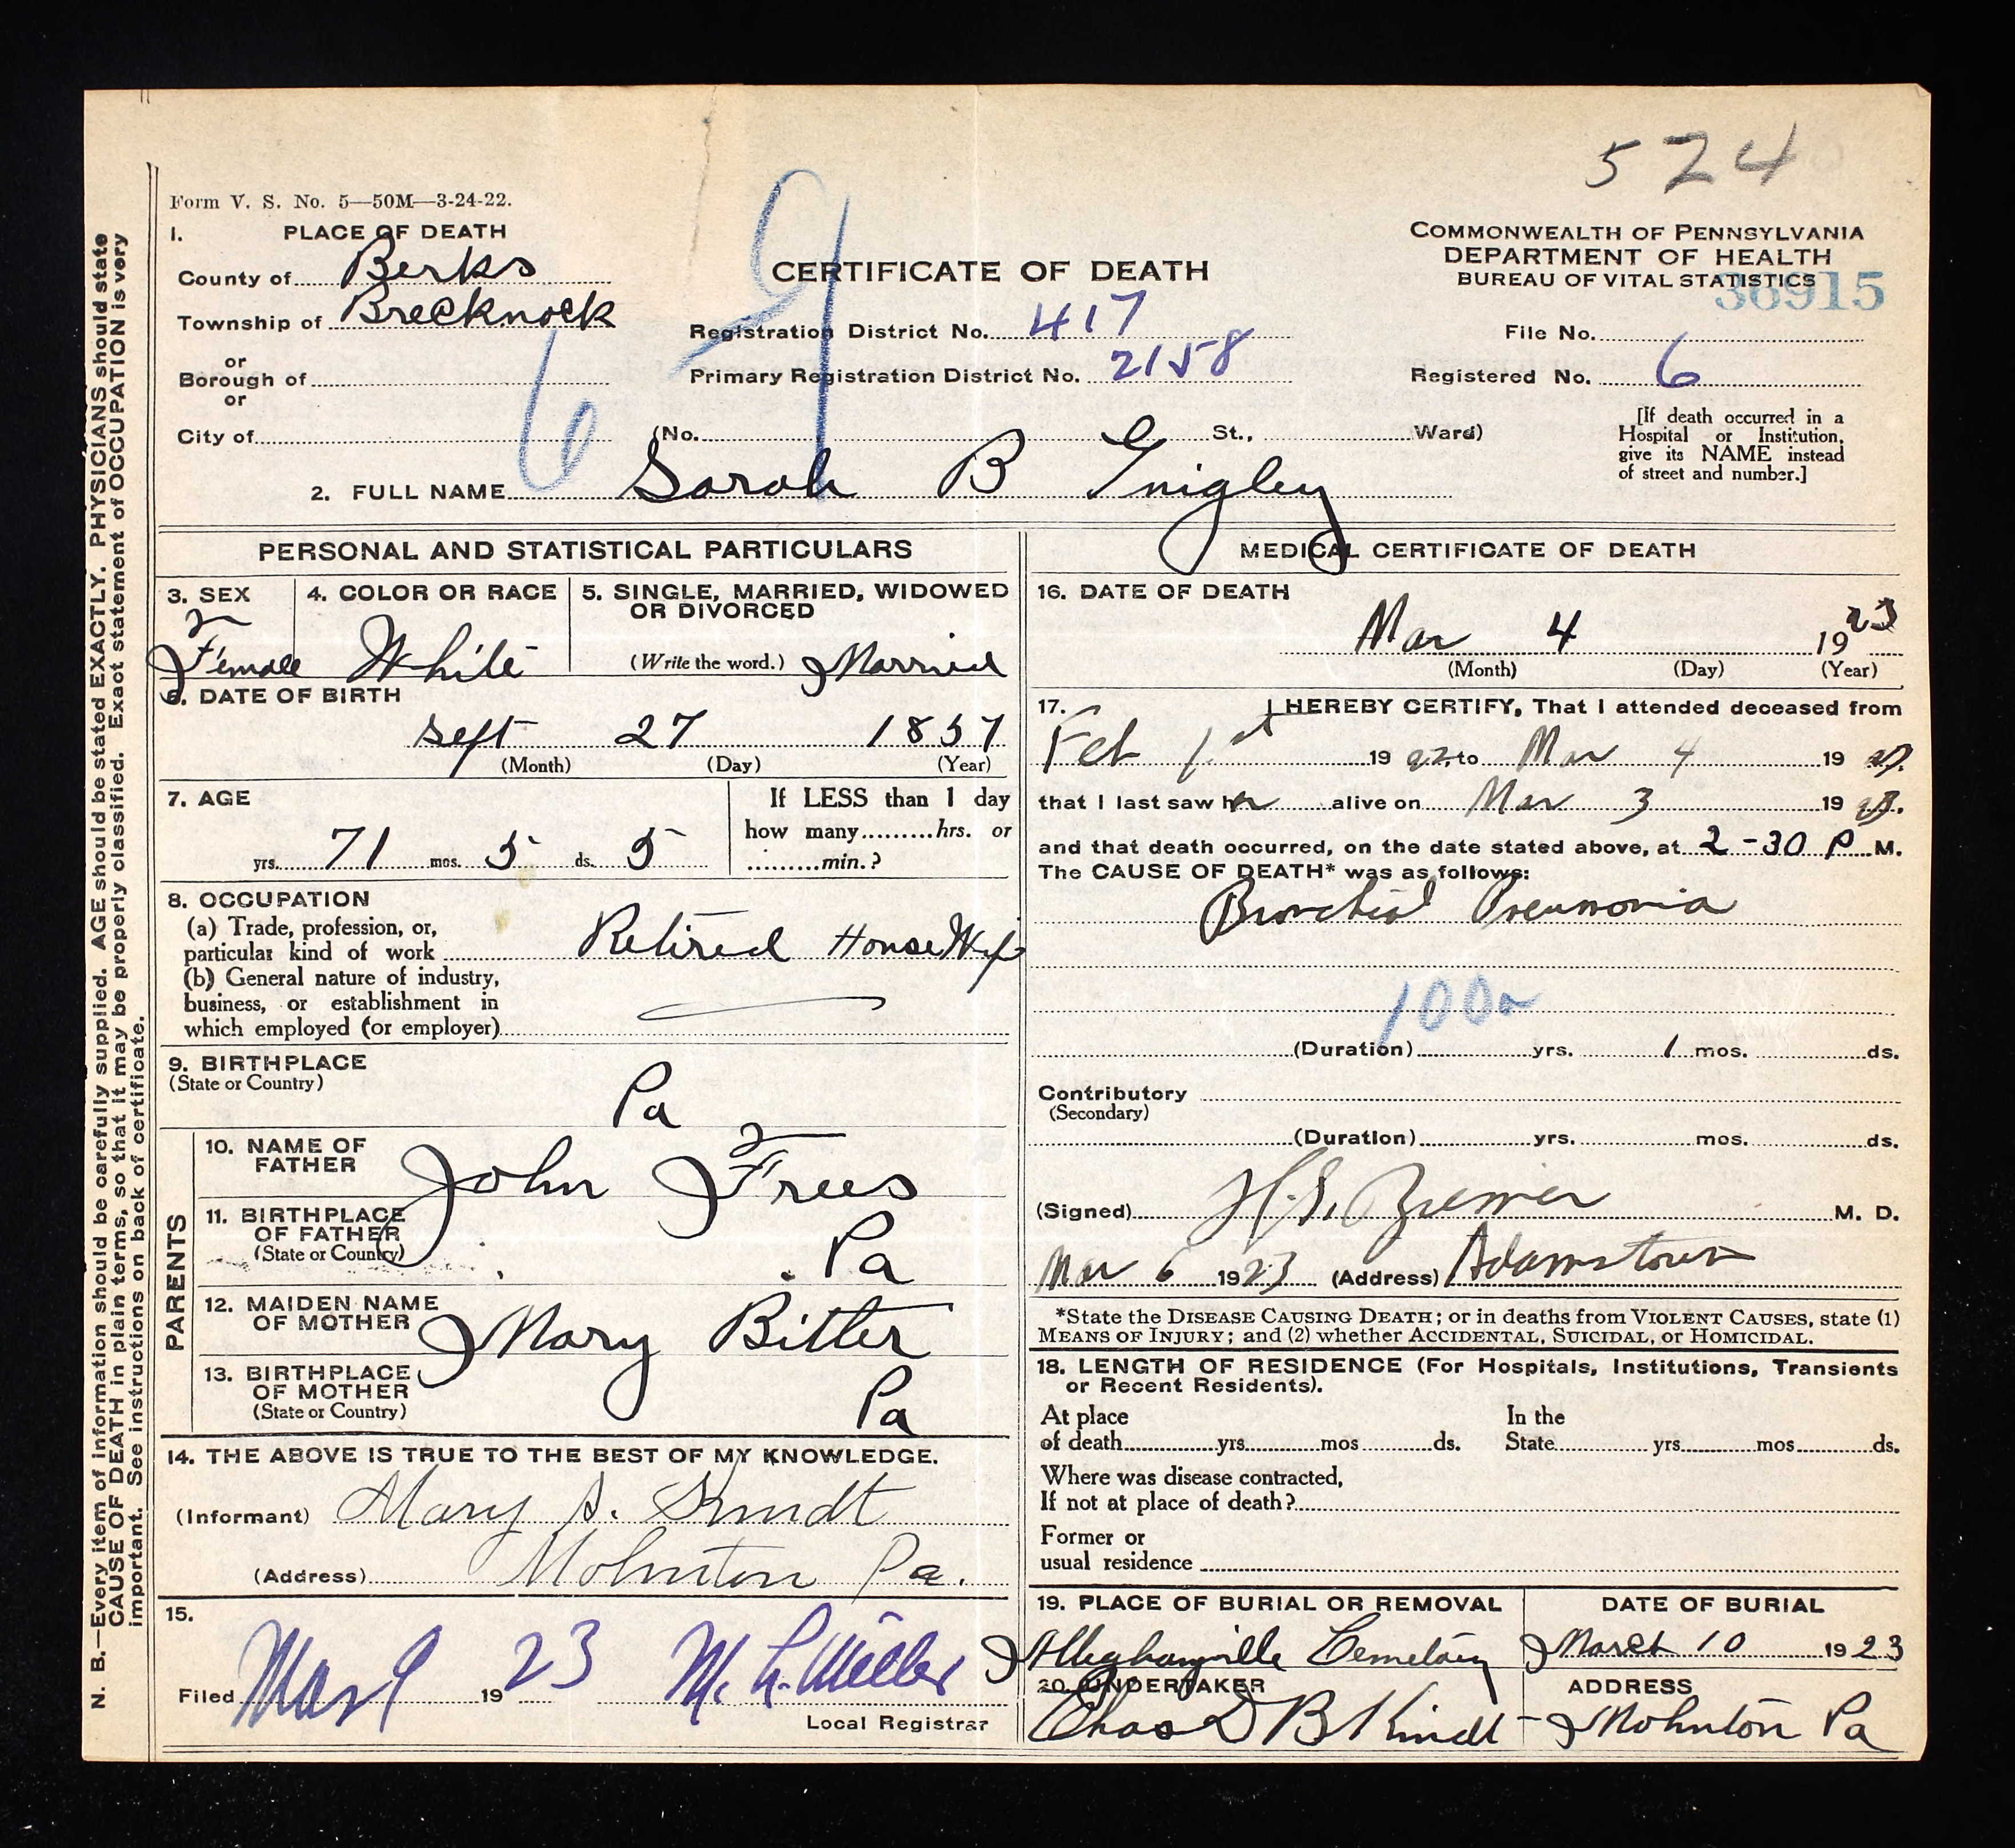 574
Form V. S. No. 5—50M—3-24-22.
1. PLACE OF DEATH
County of Berks
Township of Brecknock
or
Borough of
or
City of
CERTIFICATE OF DEATH
Registration District No. 417
Primary Registration District No. 2158
(No. St., Ward)
COMMONWEALTH OF PENNSYLVANIA
DEPARTMENT OF HEALTH
BUREAU OF VITAL STATISTICS
36915
File No.
Registered No. 6
[If death occurred in a
Hospital or Institution,
give its NAME instead
of street and number.]
6
2. FULL NAME Sarah B
PERSONAL AND STATISTICAL PARTICULARS
3. SEX
Female
4. COLOR OR RACE
White
5. SINGLE, MARRIED, WIDOWED
OR DIVORCED
(Write the word.) Married
6. DATE OF BIRTH
Sept 27 1851
(Month) (Day) (Year)
7. AGE
yrs. 71 mos. 5 ds. 5
If LESS than 1 day
how many hrs. or
min.?
8. OCCUPATION
(a) Trade, profession, or,
particular kind of work Retired HouseWife
(b) General nature of industry,
business, or establishment in
which employed (or employer)
9. BIRTHPLACE
(State or Country)
Pa
PARENTS
10. NAME OF
FATHER
John Frees
11. BIRTHPLACE
OF FATHER
(State or Country)
Pa
12. MAIDEN NAME
OF MOTHER
Mary Bitler
13. BIRTHPLACE
OF MOTHER
(State or Country)
Pa
14. THE ABOVE IS TRUE TO THE BEST OF MY KNOWLEDGE.
(Informant) Mary S.
(Address) Mohnton Pa.
15.
Filed Mar 9 1923 M. L. Miller
Local Registrar
MEDICAL CERTIFICATE OF DEATH
16. DATE OF DEATH
Mar 4 1923
(Month) (Day) (Year)
17. I HEREBY CERTIFY, That I attended deceased from
Feb 1st 19 to Mar 4 19
that I last saw her alive on Mar 3 19
and that death occurred, on the date stated above, at 2-30 P M.
The CAUSE OF DEATH* was as follows:
Bronchial Pneumonia
100a
(Duration) yrs. 1 mos. ds.
Contributory
(Secondary)
(Duration) yrs. mos. ds.
(Signed) M. D.
Mar 6 1923 (Address) Adamstown
*State the DISEASE CAUSING DEATH; or in deaths from VIOLENT CAUSES, state (1)
MEANS OF INJURY; and (2) whether ACCIDENTAL, SUICIDAL, or HOMICIDAL.
18. LENGTH OF RESIDENCE (For Hospitals, Institutions, Transients
or Recent Residents).
At place
of death yrs mos ds.
In the
State yrs mos ds.
Where was disease contracted,
If not at place of death?
Former or
usual residence
19. PLACE OF BURIAL OR REMOVAL
Alleghanyville Cemetery
DATE OF BURIAL
March 10 1923
20. UNDERTAKER
Chas D B Kindt
ADDRESS
Mohnton Pa
N. B.—Every item of information should be carefully supplied. AGE should be stated EXACTLY. PHYSICIANS should state
CAUSE OF DEATH in plain terms, so that it may be properly classified. Exact statement of OCCUPATION is very
important. See instructions on back of certificate.